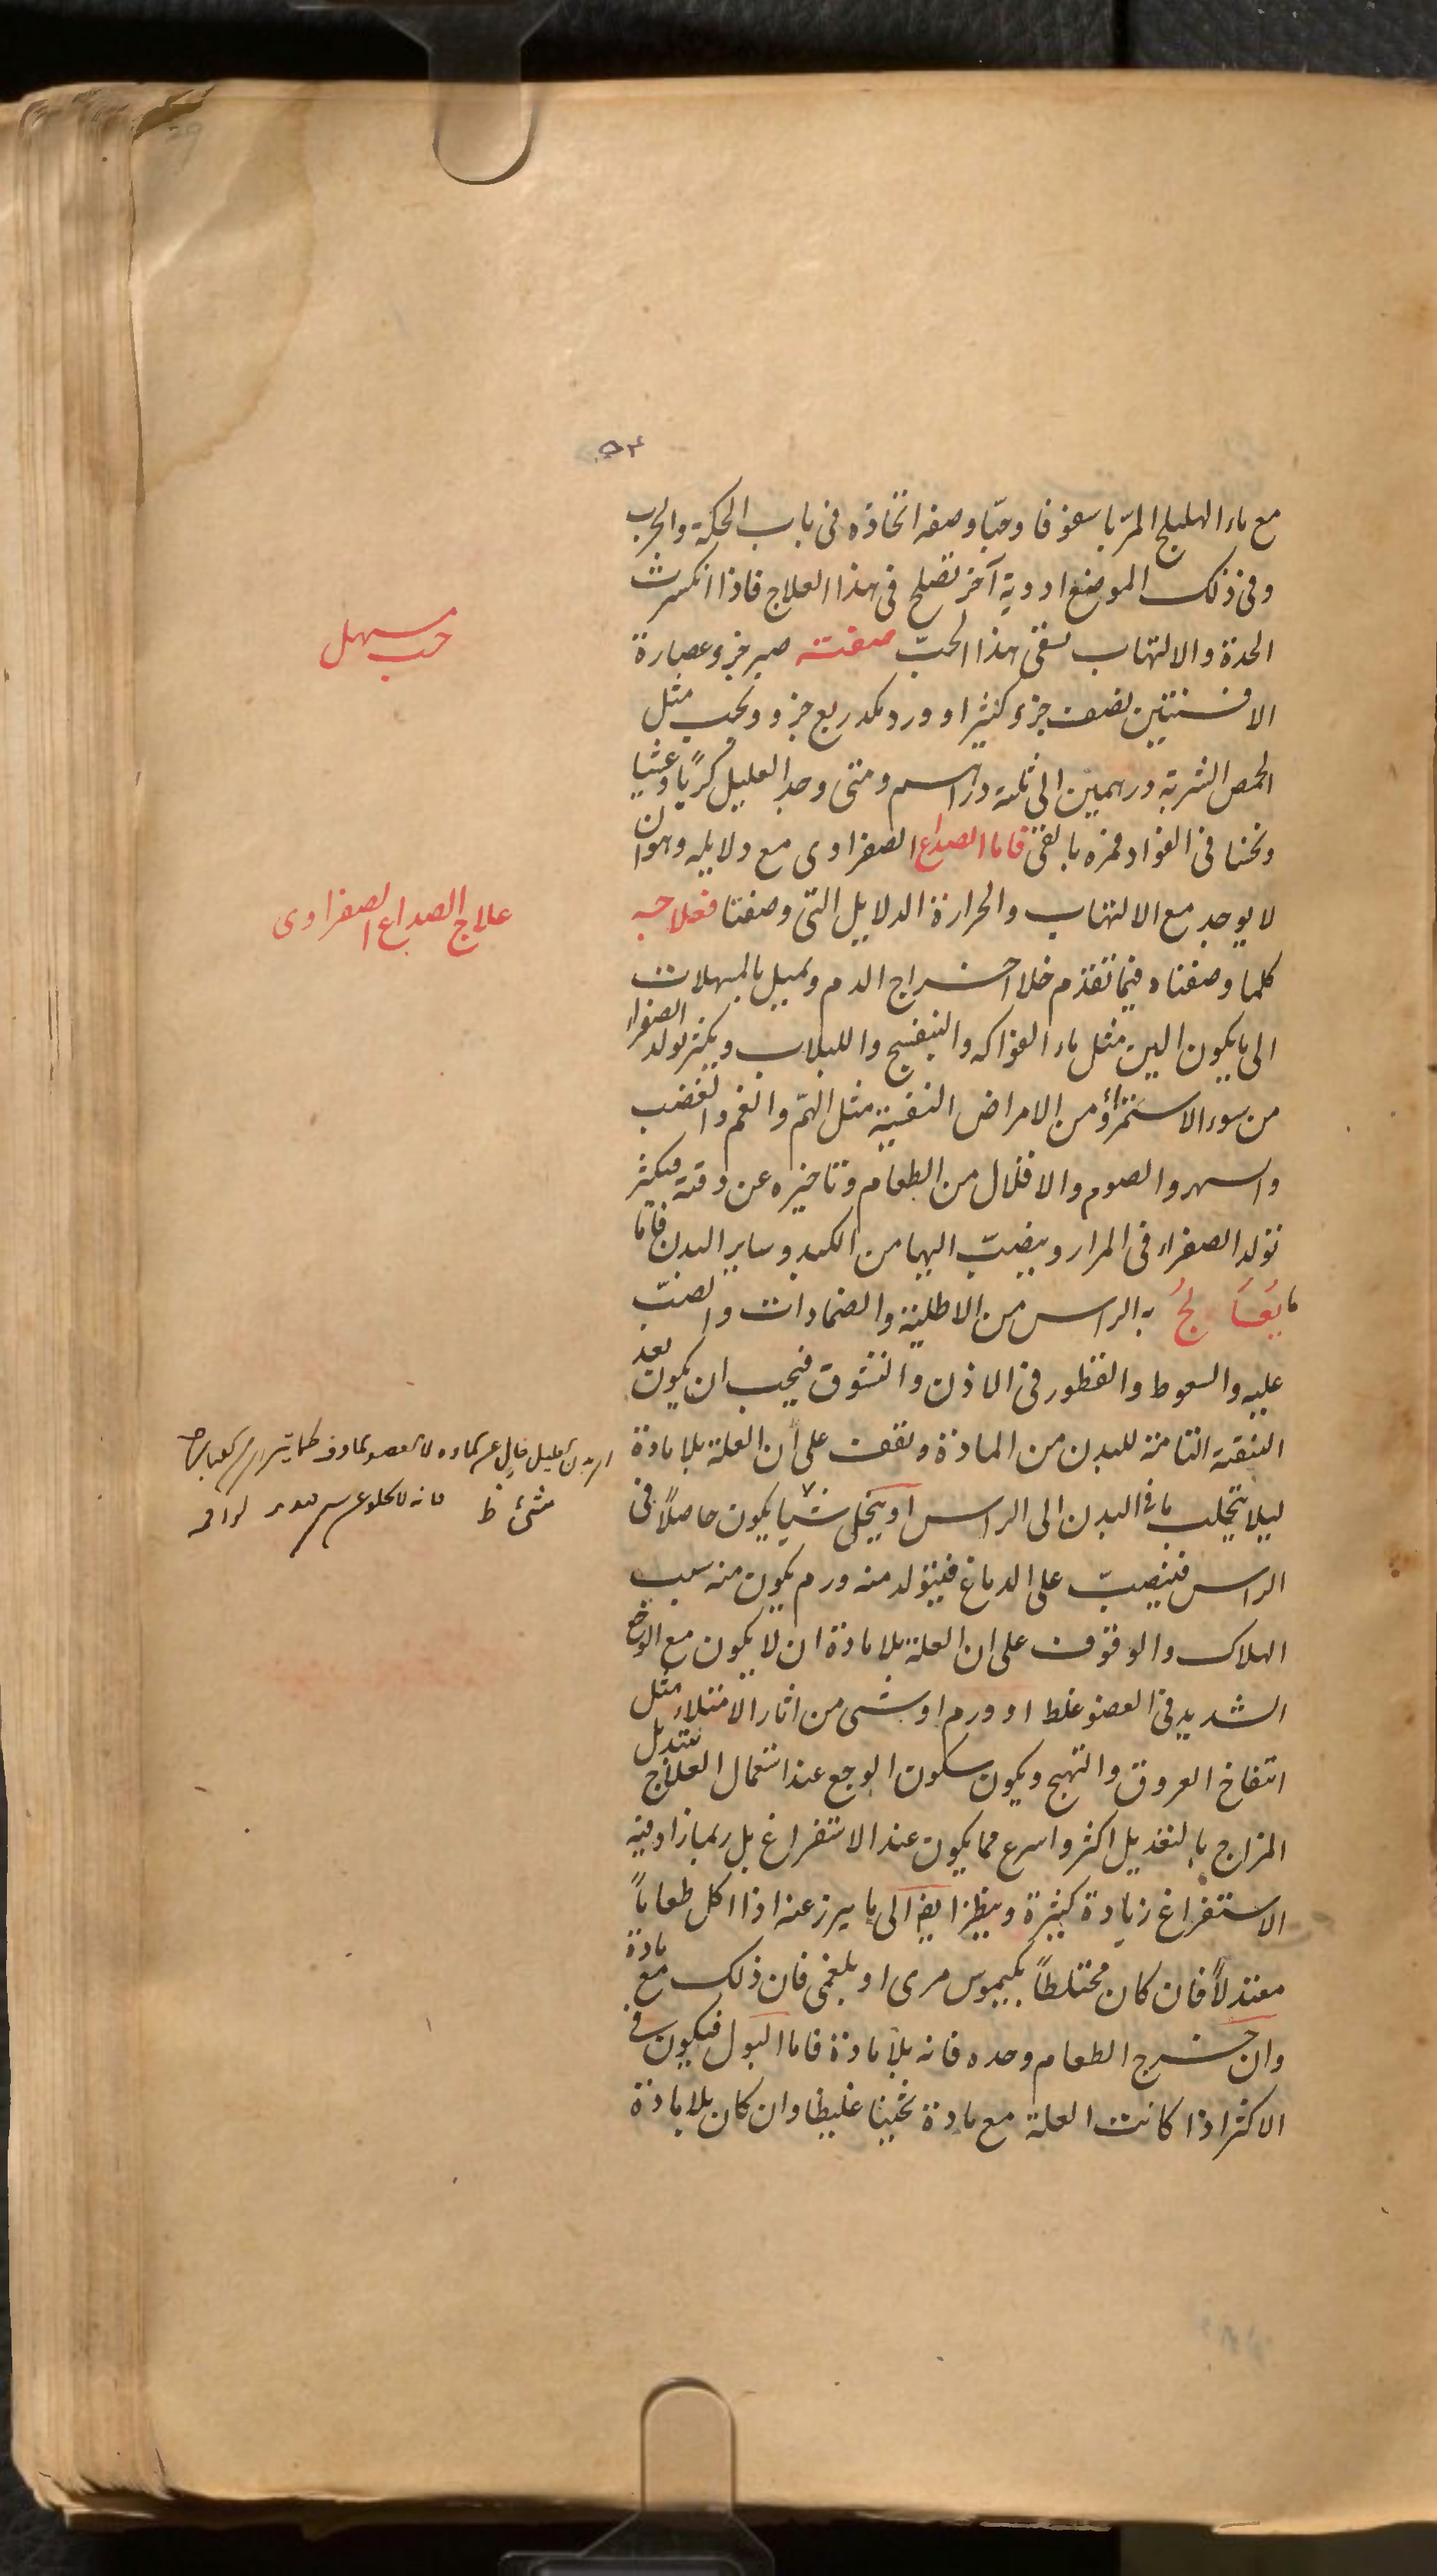 ٥٣
مع ماء الهليلج المربا سفوفا وحبا وصفه اتخاذه فى باب الحكة والجرب
وفى ذلك الموضع ادوية آخر تصلح فى هذا العلاج فاذا انكسرت
الحدة والالتهاب سقى هذا الحبّ صفته صبر جزو عصارة
حب مسهل
الافسنتين نصف جزؤ كثيرا و ورد مكد ربع جزو ويحب مثل
الحمص الشربة درهمين الى ثلثه دراهم ومتى وجد العليل كربًا وغثيا
ونخسا فى الفواد فمره بالقئ فاما الصداع الصفراوى مع دلايله وهو ان
لا يوجد مع الالتهاب والحرارة الدلايل التى وصفنا فعلاجه
علاج الصداع الصفراوى
كلما وصفناه فيما تقدم خلا اخراج الدم ويميل بالمسهلات
الى ما يكون الين مثل ماء الفواكه والبنفسج واللبلاب ويكثر تولد الصفراء
من سوء الاستمراؤ من الامراض النفسية مثل الهمّ والغم والغضب
والسهر والصوم والاقلال من الطعام وتاخيره عن وقته فيكثر
تولد الصفراء فى المرار وينصبّ اليها من الكبد وساير البدن فاما
ما يُعَالَجُ به الراس من الاطلية والضمادات والصبّ
عليه والسعوط والقطور فى الاذن والنشوق فيجب ان يكون بعد
التنقية التامة للبدن من المادة وتقف على ان العلة بلا مادة
ليلا يتجلب ما فى البدن الى الراس او يتحلى شيا يكون حاصلًا فى
شئ ظ
الراس فينصبّ على الدماغ فيتولد منه ورم يكون منه سبب
الهلاك والوقوف على ان العلة بلا مادة ان لا يكون مع الوجع
الشديد فى العضو غلط او ورم او شى من اثار الامتلاء مثل
انتفاخ العروق والتهبج ويكون سكون الوجع عند استعمال العلاج
المزاج بالتعديل اكثر واسرع مما يكون عند الاستفراغ بل ربما زاد فيه
الاستفراغ زيادة كثيرة وينظر ايضا الى ما يبرز عنه اذا اكل طعاماً
معتدلاً فان كان مختلطاً بكيموس مرى او بلغمى فان ذلك مع مادة
وان خرج الطعام وحده فانه بلا مادة فاما البول فيكون فى
الاكثر اذا كانت العلة مع مادة ثخينا غليظا وان كان بلا مادة